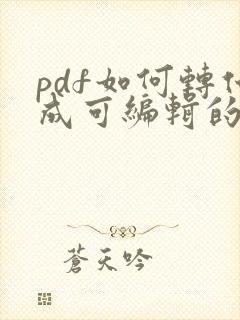 pdf如何轉
成可編輯的
蒼天吟